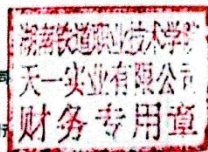 湖南铁道职业技术学院
天一实业有限公司
财务专用章